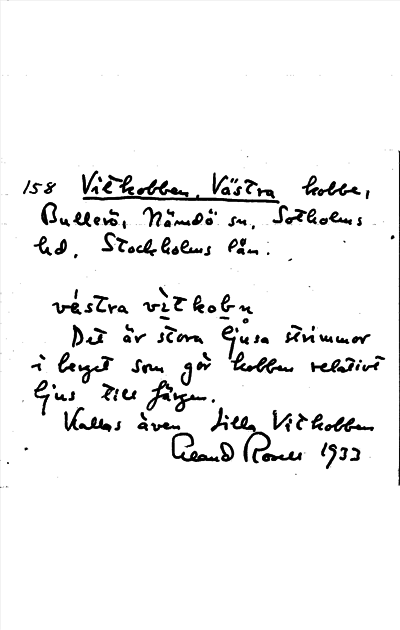 158 Vitkobben, Västra kobbe,
Bullerö, Nämdö sn, Sotholms
hd, Stockholms län.
västra vìtkobn̥
Det är stora ljusa strimmor
i berget som gör kobben relativt
ljus till färgen.
Kallas även Lilla Vitkobben
1933